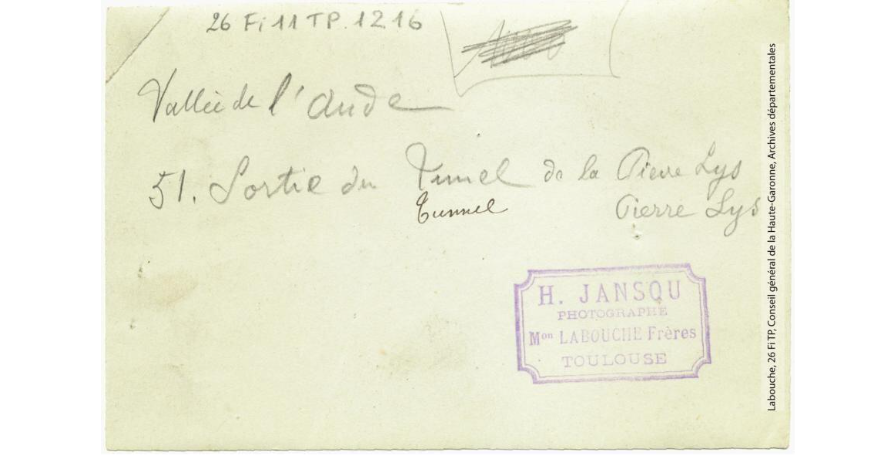 26 Fi 11 TP. 1216
Vallée de l'Aude
51. Sortie du Tunnel de la Pierre Lys
Tunnel Pierre Lys
H. JANSOU
PHOTOGRAPHE
Mon LABOUCHE Frères
TOULOUSE
Labouche, 26 Fi TP, Conseil général de la Haute-Garonne, Archives départementales